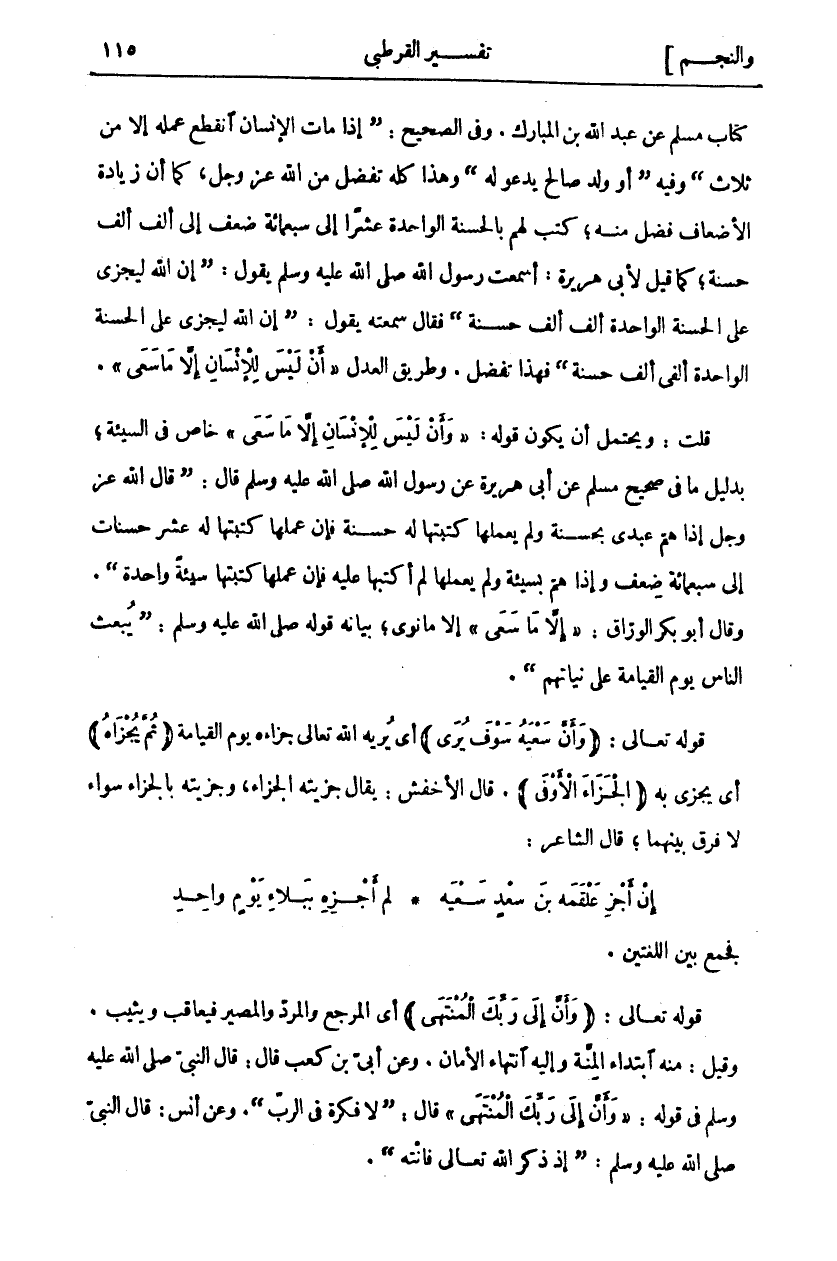 والنجـــم ]
تفســـير القرطبى
١١٥
كتاب مسلم عن عبد الله بن المبارك . وفى الصحيح : ” إذا مات الإنسان آنقطع عمله إلا من
ثلاث “ وفيه ” أو ولد صالح يدعو له “ وهذا كله تفضل من الله عز وجل، كما أن زيادة
الأضعاف فضل منــه؛ كتب لهم بالحسنة الواحدة عشرًا إلى سبعمائة ضعف إلى ألف ألف
حسنة؛ كما قيل لأبى هريرة : أسمعت رسول الله صلى الله عليه وسلم يقول : ” إن الله ليجزى
على الحسنة الواحدة ألف ألف حســنة “ فقال سمعته يقول : ” إن الله ليجزى على الحسنة
الواحدة ألفى ألف حسنة “ فهذا تفضل . وطريق العدل « أَنْ لَيْسَ لِلْإِنْسَانِ إِلَّا مَا سَعَى » .
قلت : ويحتمل أن يكون قوله : « وَأَنْ لَيْسَ لِلْإِنْسَانِ إِلَّا مَا سَعَى » خاص فى السيئة؛
بدليل ما فى صحيح مسلم عن أبى هريرة عن رسول الله صلى الله عليه وسلم قال : ” قال الله عز
وجل إذا همّ عبدى بحســنة ولم يعملها كتبتها له حســنة فإن عملها كتبتها له عشر حسنات
إلى سبعمائة ضِعف وإذا همّ بسيئة ولم يعملها لم أكتبها عليه فإن عملها كتبتها سيئةً واحدة “ .
وقال أبو بكر الورّاق : « إِلَّا مَا سَعَى » إلا ما نوى؛ بيانه قوله صلى الله عليه وسلم : ” يُبعث
الناس يوم القيامة على نياتهم “ .
قوله تعــالى : ﴿ وَأَنَّ سَعْيَهُ سَوْفَ يُرَى ﴾ أى يُريه الله تعالى جزاءه يوم القيامة ﴿ ثُمَّ يُجْزَاهُ ﴾
أى يجزى به ﴿ الْجَزَاءَ الْأَوْفَى ﴾ . قال الأخفش : يقال جزيته الجزاء، وجزيته بالجزاء سواء
لا فرق بينهما؛ قال الشاعر :
إنْ أَجْزِ عَلْقَمَه بنَ سعْدٍ سَــعْيَه * لم أَجْــزِهِ بَبَــلاءِ يَوْمٍ واحِــدِ
فجمع بين اللغتين .
قوله تعــالى : ﴿ وَأَنَّ إِلَى رَبِّكَ الْمُنْتَهَى ﴾ أى المرجع والمردّ والمصير فيعاقب ويثيب .
وقيل : منه آبتداء المِنّة وإليه آنتهاء الأمان . وعن أبىّ بن كعب قال : قال النبىّ صلى الله عليه
وسلم فى قوله : « وَأَنَّ إِلَى رَبِّكَ الْمُنْتَهَى » قال : ” لا فكرة فى الربّ “ . وعن أنس : قال النبىّ
صلى الله عليه وسلم : ” إذ ذكر الله تعــالى فآنْته “ .